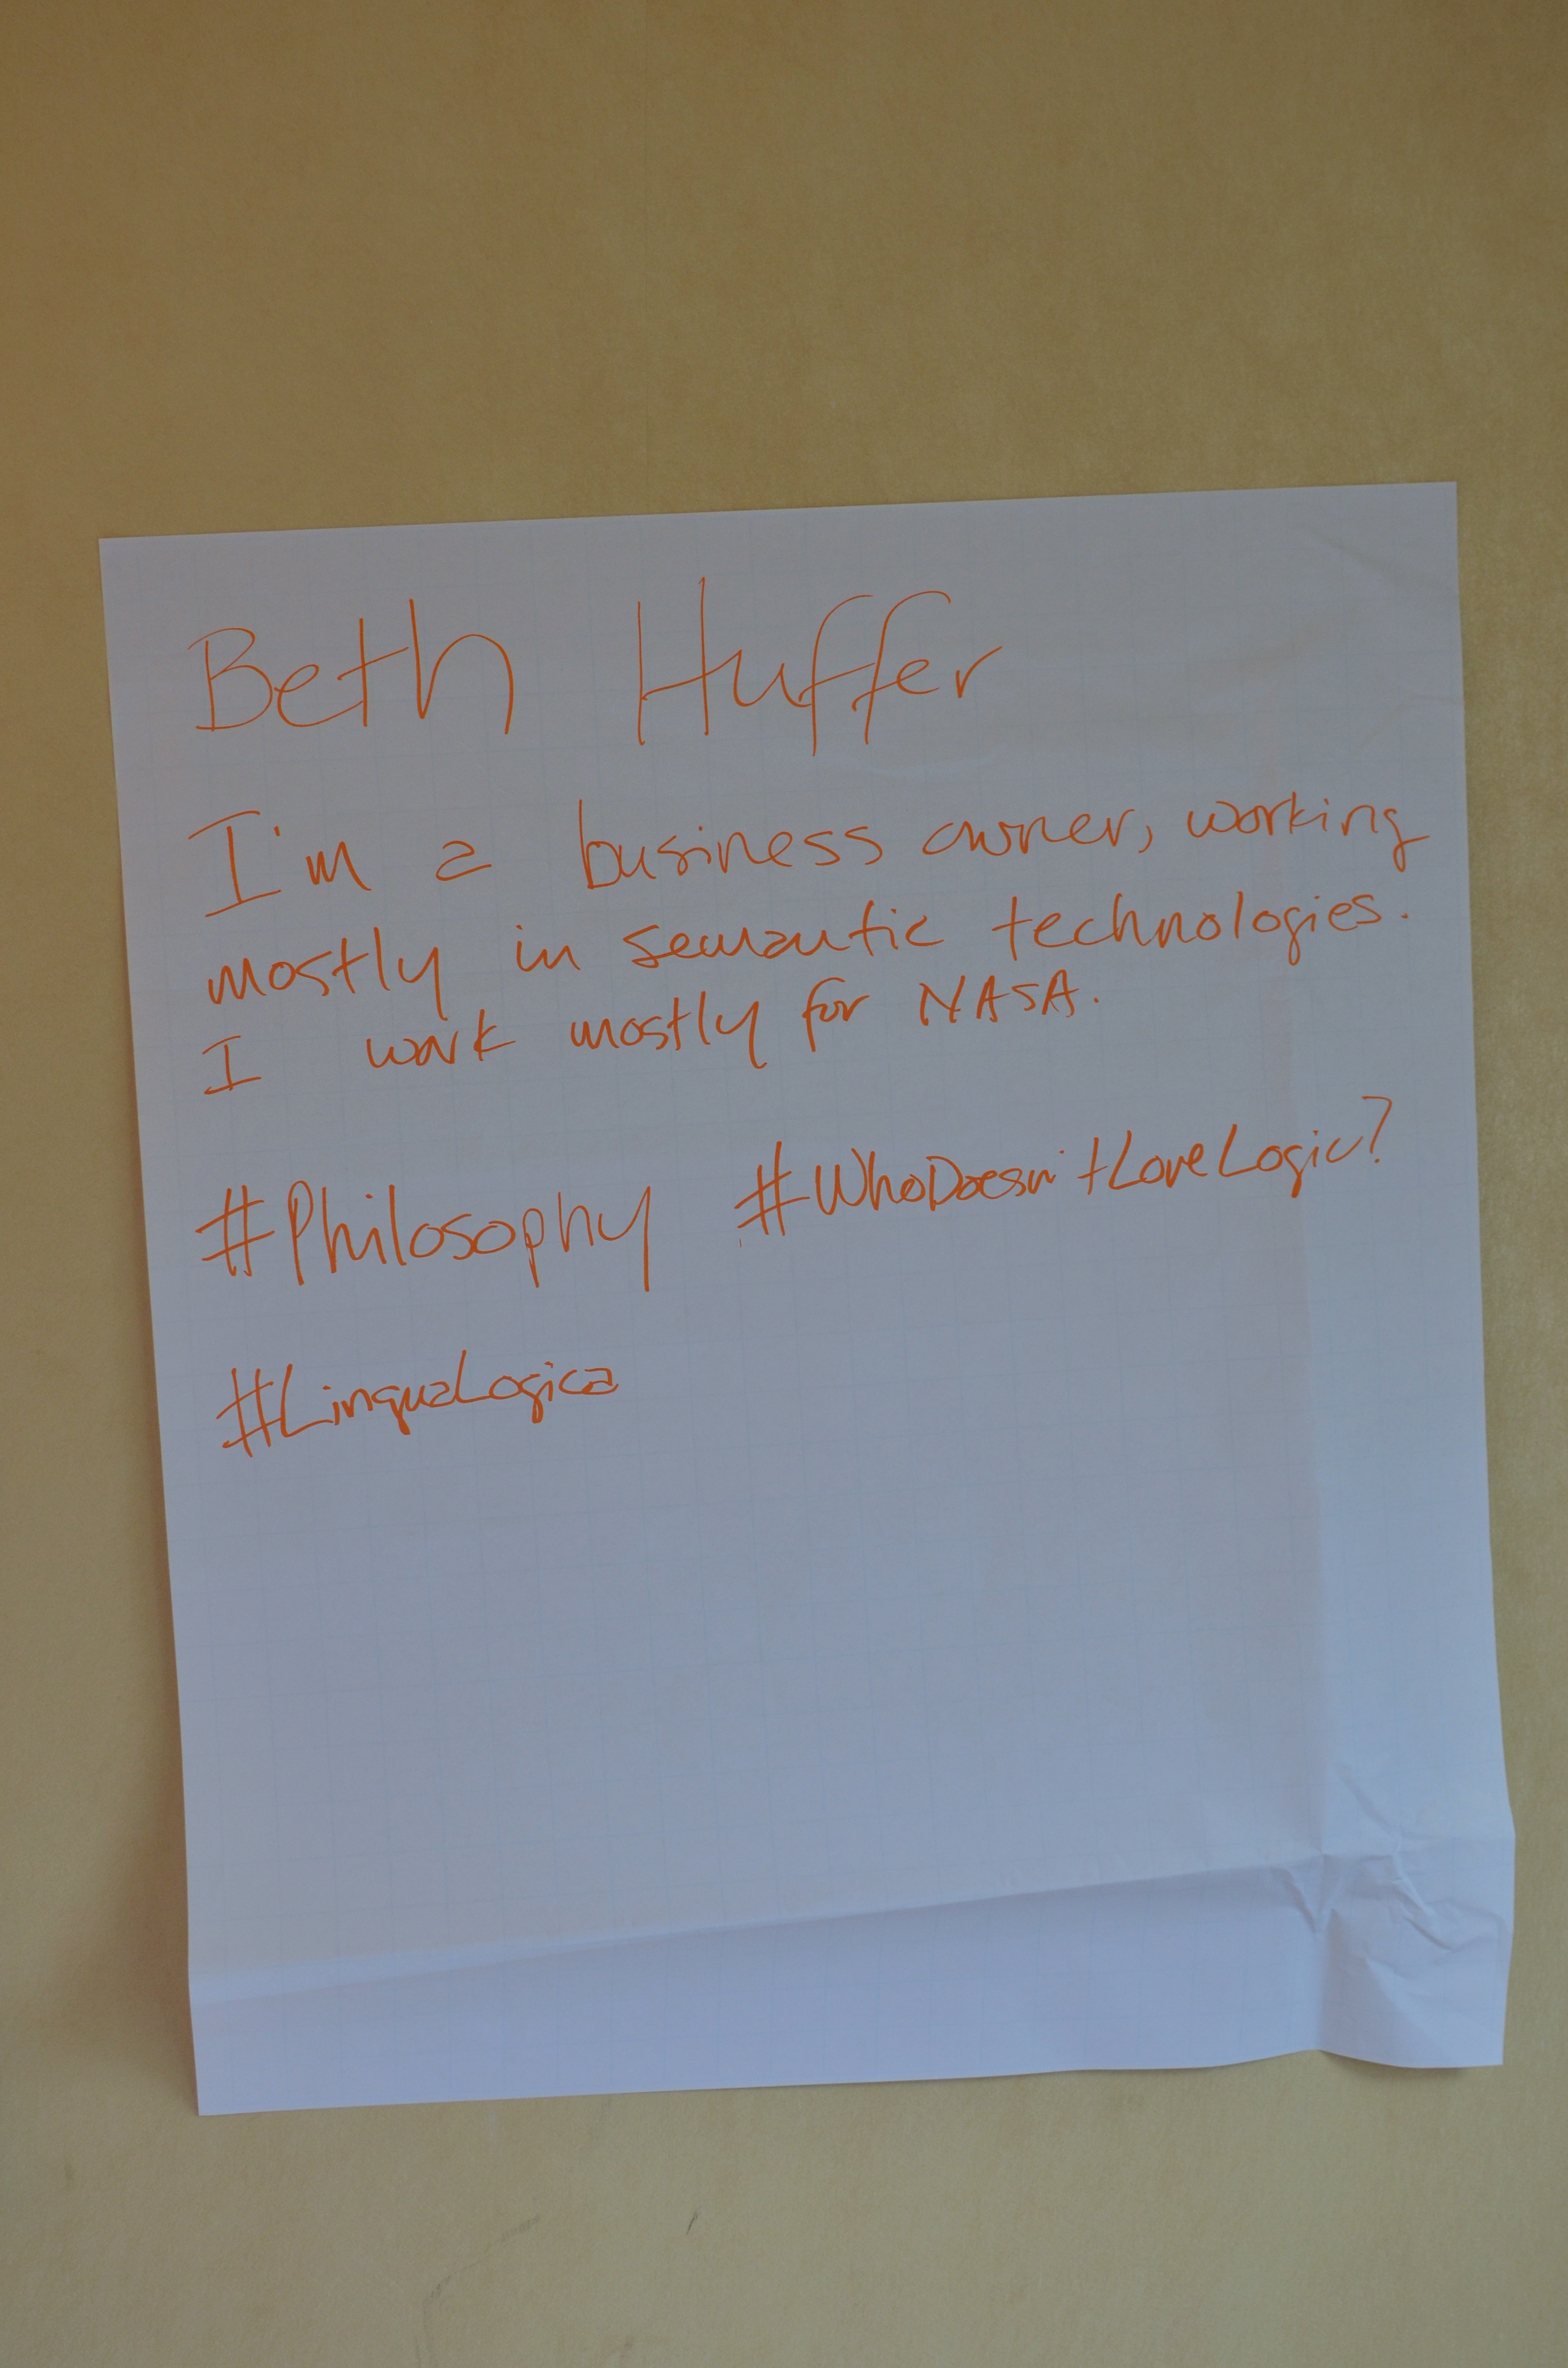 Beth Huffer
I'm a business owner, working
mostly in semantic technologies.
I work mostly for NASA.
#Philosophy #WhoDoesn'tLoveLogic?
#LinguaLogica